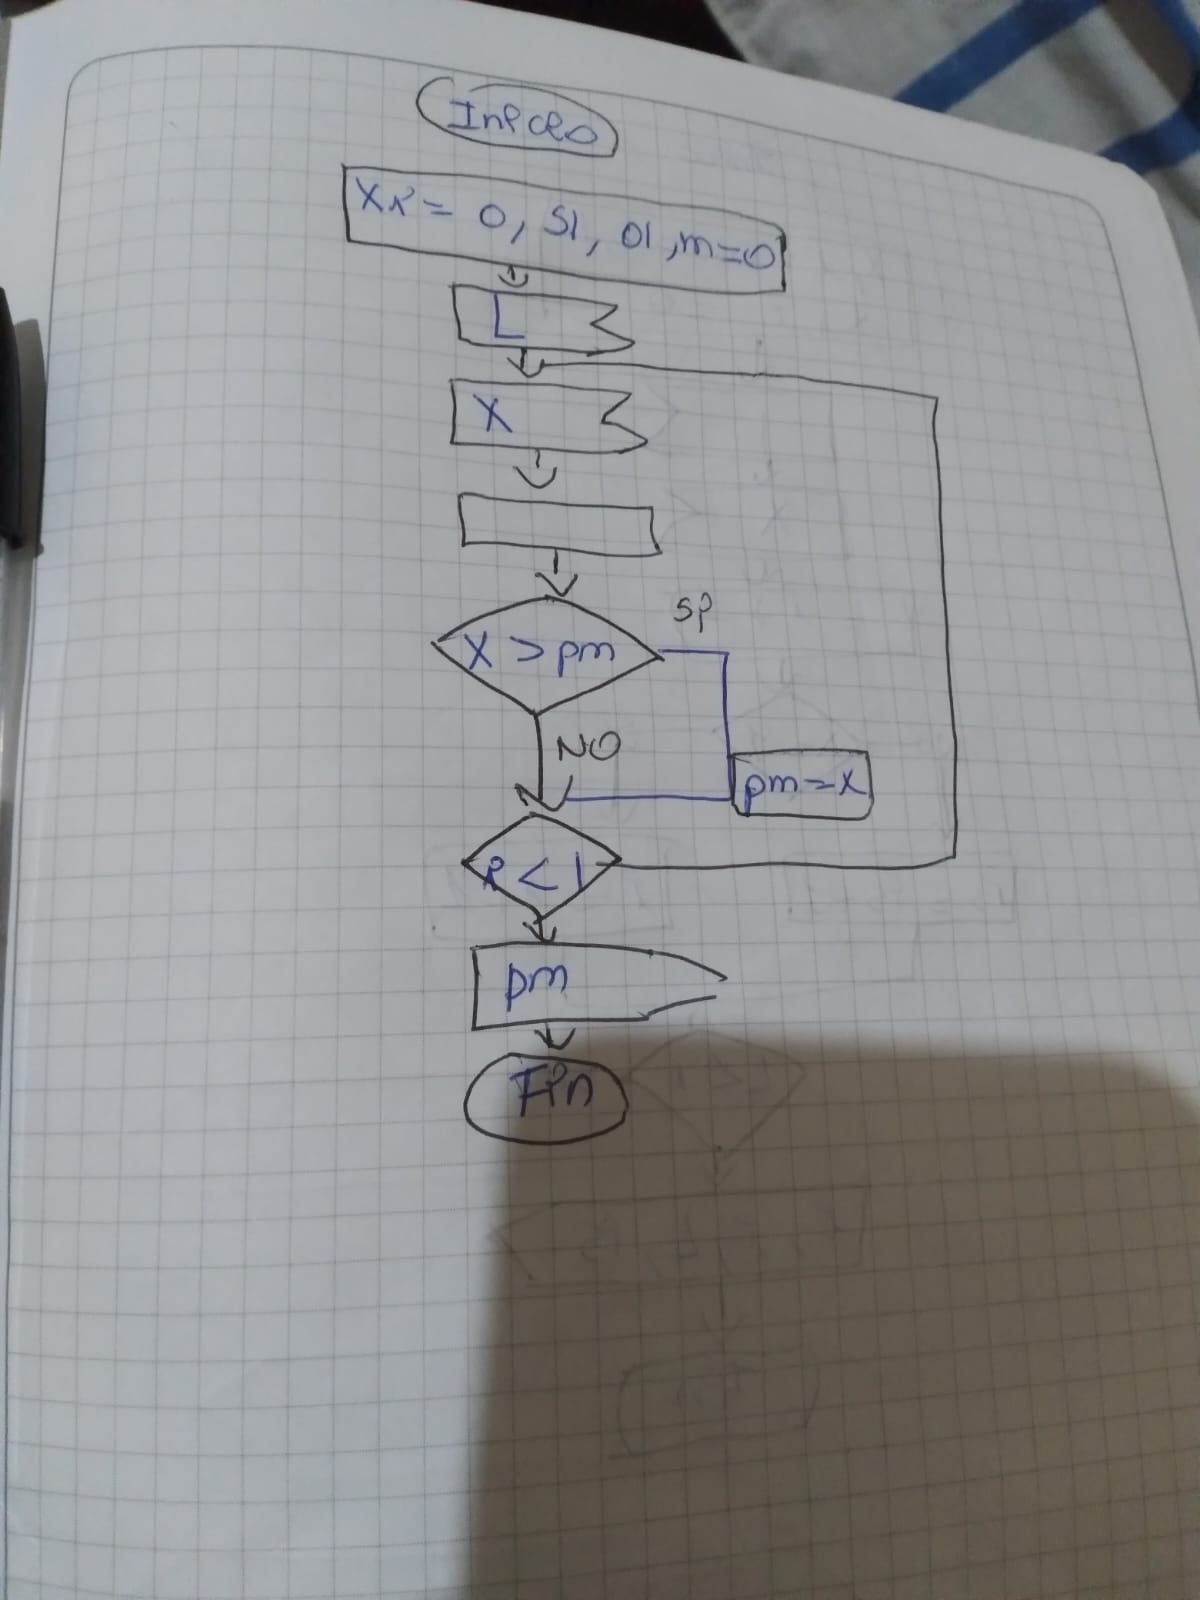 Inicio
Xi = 0, SI, 01, m=0
L
X
X > pm
si
NO
pm=x
i < 1
pm
Fin